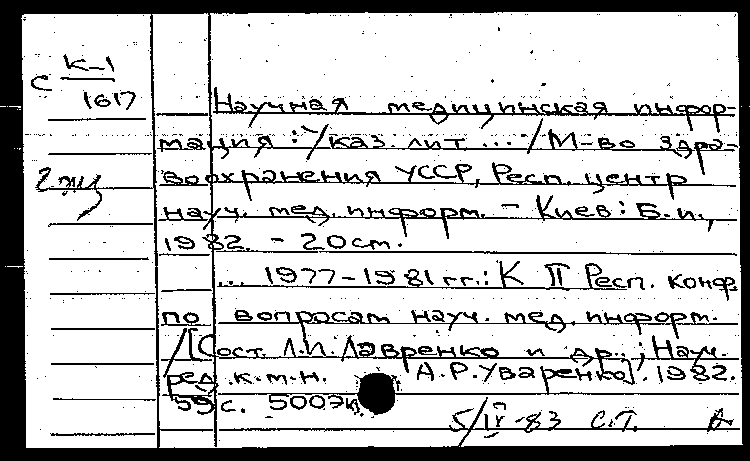 К-1
С
1617
Научная медицинская инфор-
мация : Указ. лит. ... / М-во здра-
воохранения УССР, Респ. центр
науч. мед. информ. - Киев: Б.и.,
1982. - 20 см.
... 1977-1981 гг.: К II Респ. конф.
по вопросам науч. мед. информ.
/[Сост. Л.И. Лавренко и др.; Науч.
ред. к.м.н. А.Р. Уваренко]. 1982.
59 с. 500 эк
2 экз
5/IV-83 С.П.